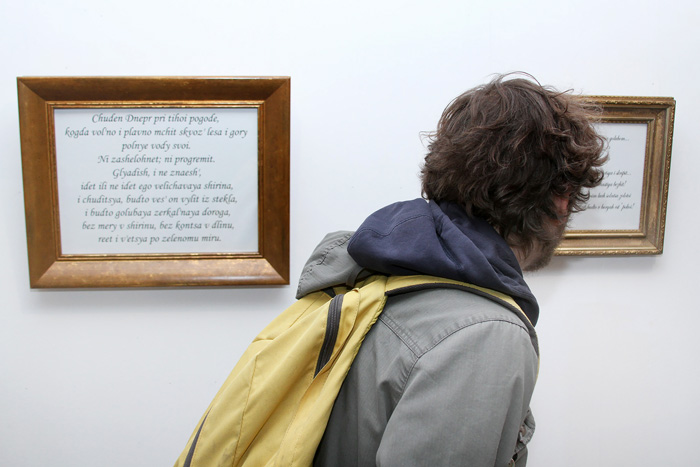 Chuden Dnepr pri tihoi pogode,
kogda vol'no i plavno mchit skvoz' lesa i gory
polnye vody svoi.
Ni zashelohnet; ni progremit.
Glyadish, i ne znaesh',
idet ili ne idet ego velichavaya shirina,
i chuditsya, budto ves' on vylit iz stekla,
i budto golubaya zerkal'naya doroga,
bez mery v shirinu, bez kontsa v dlinu,
reet i v'etsya po zelenomu miru.